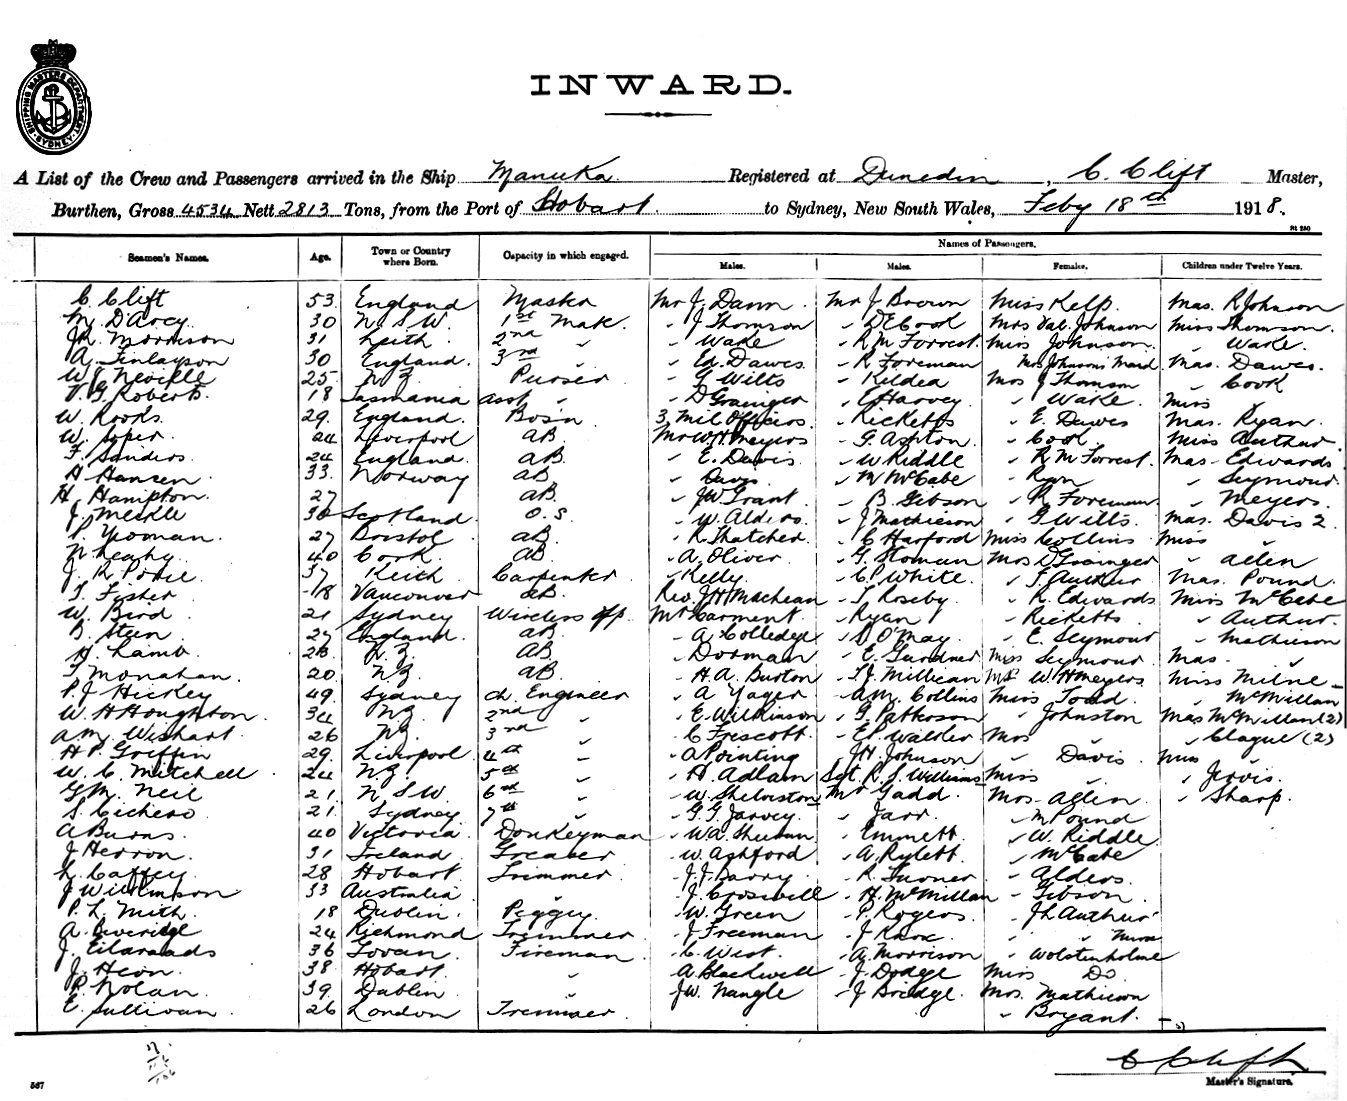 SHIPPING MASTERS DEPARTMENT SYDNEY
INWARD.
A List of the Crew and Passengers arrived in the Ship Manuka Registered at Dunedin, C. Clift Master,
Burthen, Gross 4534 Nett 2813 Tons, from the Port of Hobart to Sydney, New South Wales, Feby 18th 1918.
Names of Passengers.
Seamen's Names. Age. Town or Country where Born. Capacity in which engaged. Males. Males. Females. Children under Twelve Years.
C. Clift 53 England Master Mr J. Dann Mr J Brown Miss Kelp Mas. R Johnson
M. D'Arcy 30 N.S.W. 1st Mate " J Thomson " D E Cook Mrs Val. Johnson Miss Thomson
Morrison 31 Leith 2nd " " Wake " R M Forrest Miss Johnson " Wake
A. Finlayson 30 England 3rd " " Ed. Dawes " R Foreman Mrs Johnsons Maid Mas. Dawes
Neville 25 N.Z. Purser " G Wills " Kildea Mrs J Thomson " Cook
G. Roberts 18 Tasmania Asst " " D Grainger " E Harvey " Wake Miss "
W. Rooks 29 England Bosin 3 Mil Officers " Ricketts " E. Dawes Mas. Ryan
W. 24 Liverpool AB. Mr W H Meyers " G. Ashton " Cook Miss Arthur
F. Sanders 24 England AB. " E. Davis " W Riddle " R M Forrest Mas Edwards
H Hansen 33 Norway AB " Davis " M McCabe " Ryan " Seymour
H. Hampton 27 AB. " JW Grant " B. Gibson " R Foreman " Meyers
J. Scotland O.S. " W. Alders " J Mathieson " G Wills Mas. Davis 2
Yeoman 27 Bristol AB. " R Thatcher " C Harford Miss Collins Miss "
N Leahy 40 Cork AB " A. Oliver " G. Mrs D Grainger " Allen
J. R. 37 Keith Carpenter " Kelly " C. P. White " J. Arthur Mas. Pound
Fisher 18 Vancouver AB. Rev. J H MacLean " T Roseby " R. Edwards Miss McCabe
W. Bird 21 Sydney Wireless Opp. Mr Garment " Ryan " Ricketts " Arthur
Steen 27 England AB. " A. Colledge " O'May " E. Seymour " Mathieson
H. Lamb N.Z. AB " Dorman " E. Gardner Miss Seymour Mas. "
T. Monahan 20 N.Z. AB " H. A. Burton " T J. Millican Mrs W H Meyers Miss Milne
P. J. Hickey 49 Sydney Ch. Engineer " A Yager " A M Collins Miss Todd " McMillan
W. H Houghton 34 N.Z. 2nd " " E. Wilkinson " G. Patterson " Johnston Mas McMillan (2)
A M. Wishart 26 N.Z. 3rd " " C Friscott " E P Waldier Mrs " " Clague (2)
H P. Griffin 29 Liverpool 4th " " A Pointing " J H. Johnson " Davis Miss "
W. C. Mitchell 24 N.Z. 5th " " H Adlam Sgt R. S. Williams Miss " " Jervis
G M. Neil 21 N.S.W. 6th " " W. Shelverston Mr Gadd Mrs Allen " Sharp
S. Cichero 21 Sydney 7th " " G. G. Jarvey " Jarr " M Pound
A Burns 40 Victoria Donkeyman " W A. " Emmett " W. Riddle
J Herron 31 Ireland Greaser " W. Ashford " A. Rylett " McCabe
L. Caffey 28 Hobart Trimmer " J. J. Barry " R. Turner " Alders
J Wilkinson 33 Australia " " J. Croswell " H. McMillan " Gibson
P. L. Mith 18 Dublin Peggy " W. Green " P. Rogers " J L Arthur
A. Everidge 24 Richmond Trimmer " J Freeman " J Knox " " Nurse
J. 36 Govan Fireman " C. West " A. Morrison " Wolstenholme
J. Heon 38 Hobart " " A Blackwell " J. Dodge Miss Do
P. Nolan 39 Dublin " " J W. Nangle " J Bridge Mrs. Mathieson
E. Sullivan 26 London Trimmer " Bryant
C Clift
Master's Signature.
567